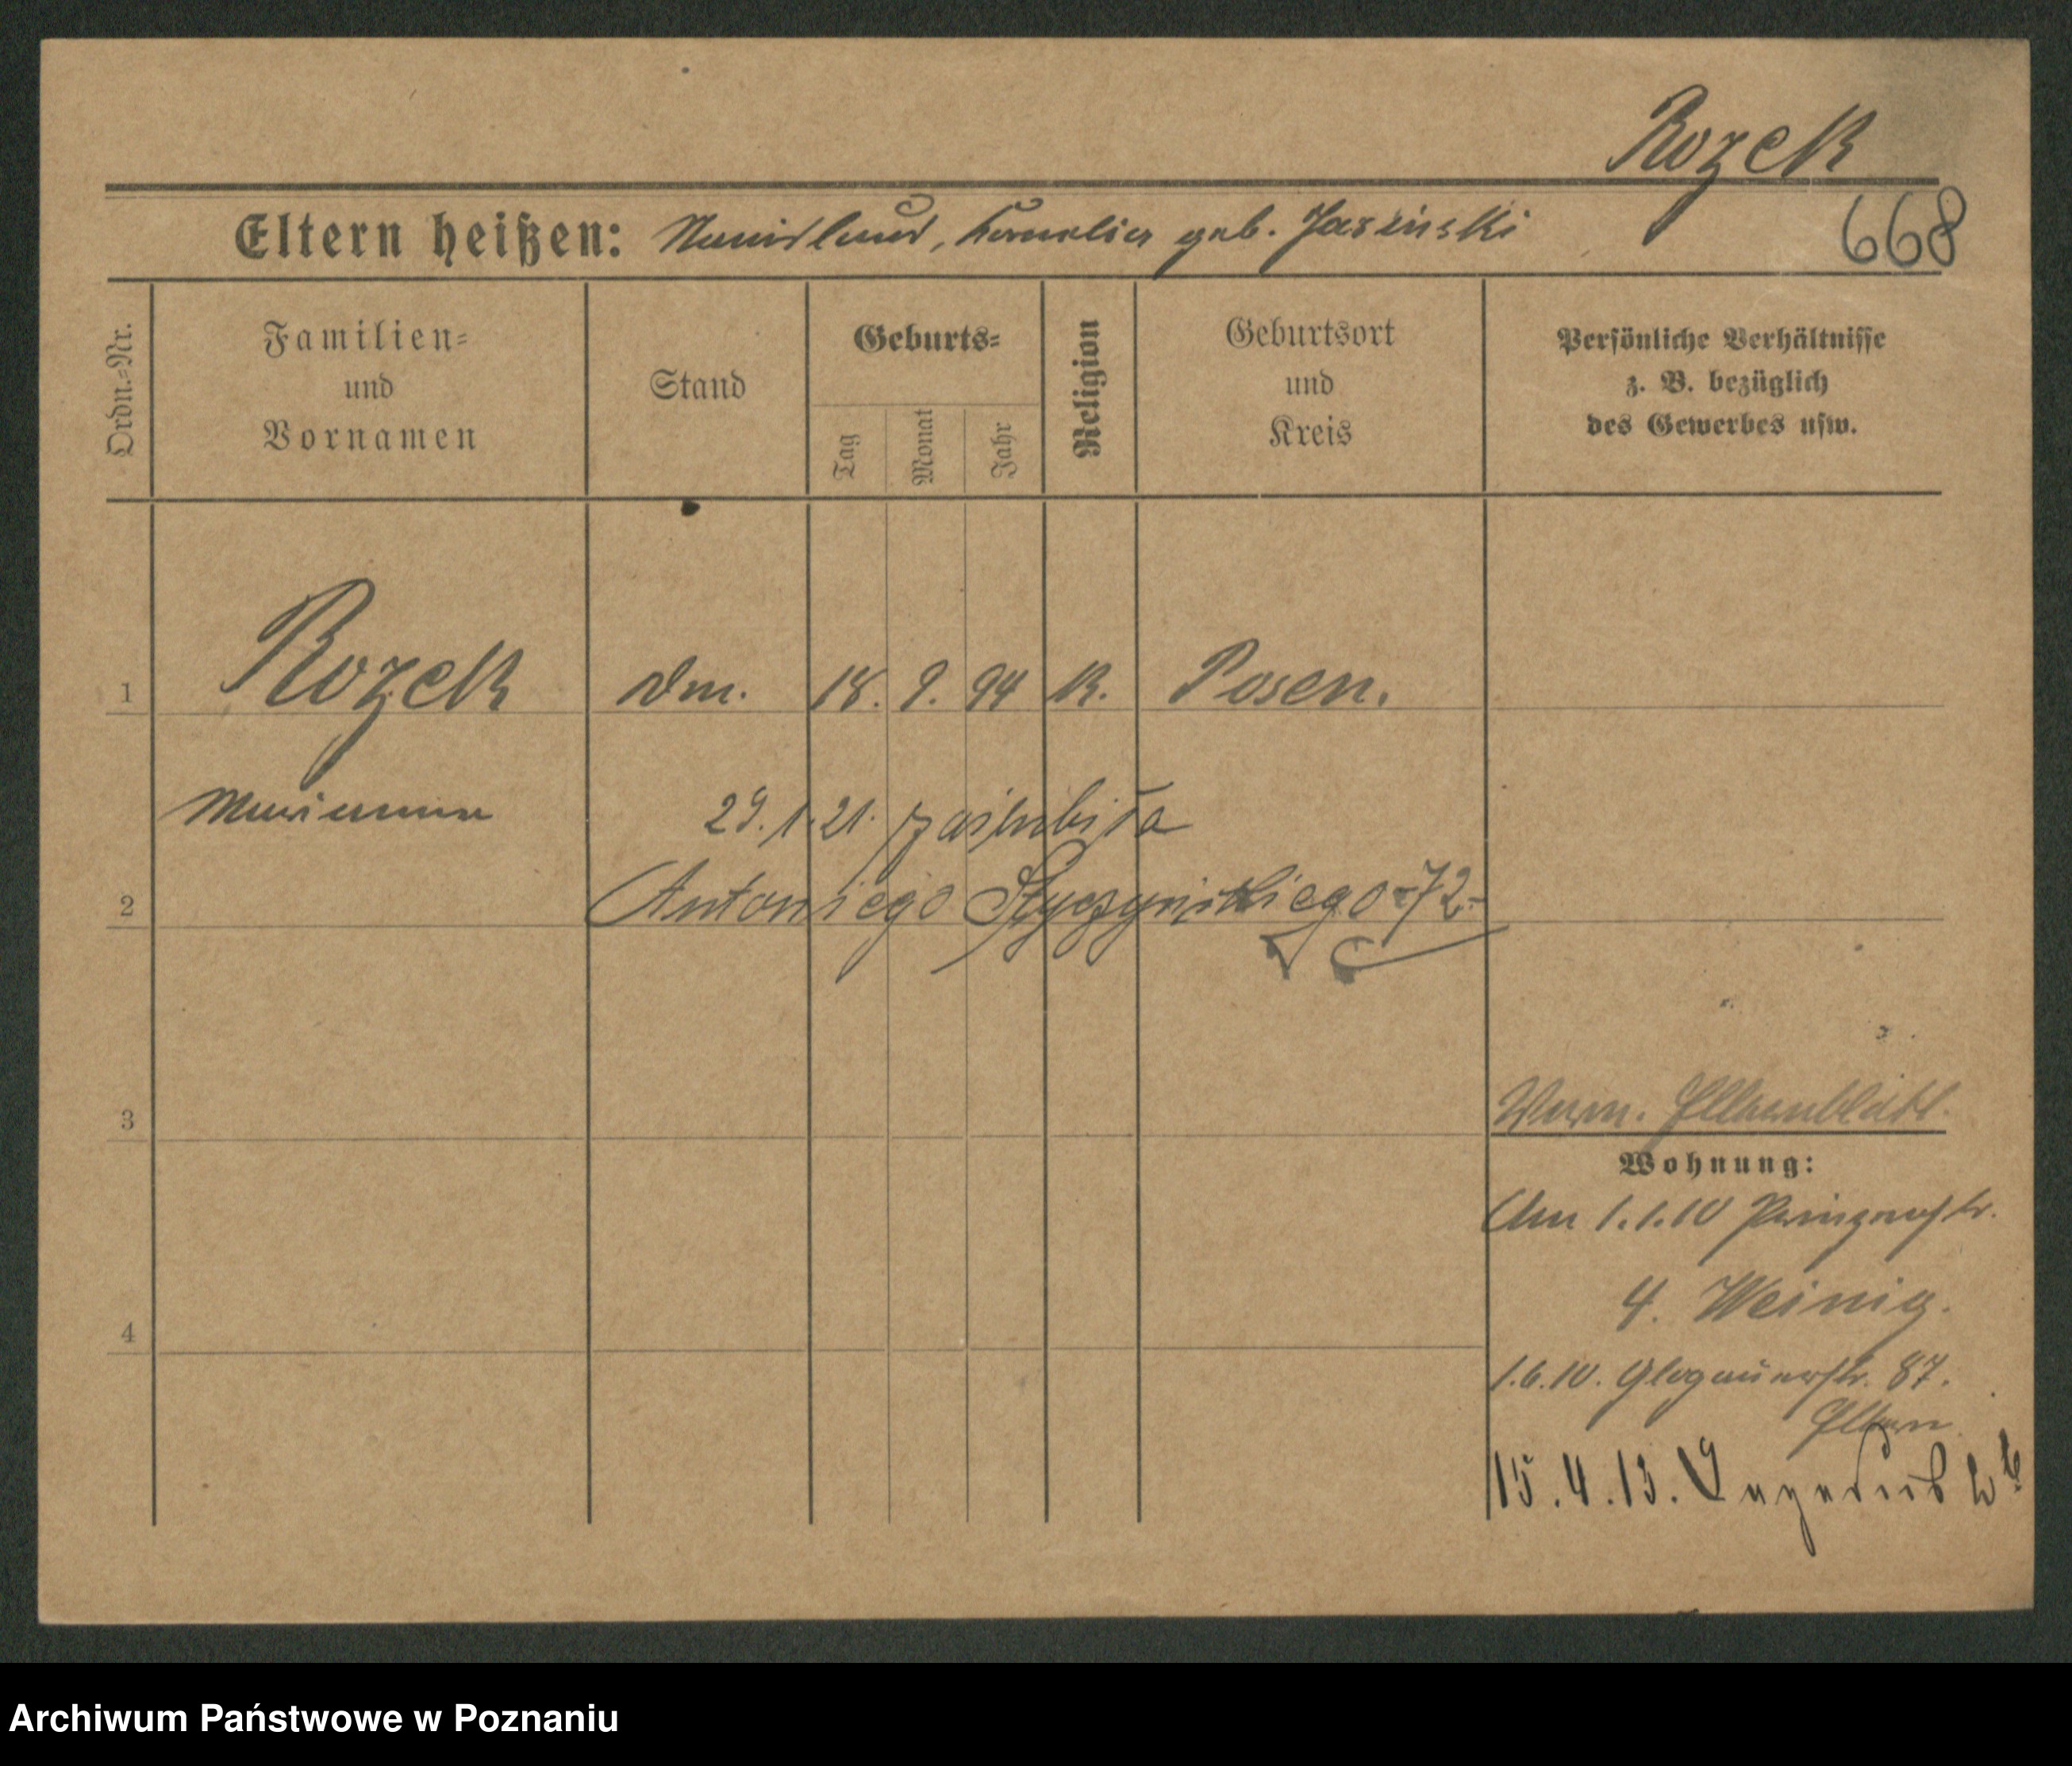 Rozek
Eltern heißen: Stanislaus, Kornelia geb. Jasinski
668
Ordn.=Nr.
Familien=
und
Vornamen
Stand
Geburts=
Tag
Monat
Jahr
Religion
Geburtsort
und
Kreis
Persönliche Verhältnisse
z. B. bezüglich
des Gewerbes usw.
1 Rozek 18. 9. 94 K. Posen.
Marianna
29.1.21. zaślubiła
2 Antoniego Styczyńskiego -72-
3
Elternblatt.
Wohnung:
Am 1.1.10 Prinzenstr.
4. Weinig.
4
1.6.10. Glogauerstr. 87.
Eltern
15.4.13.
Archiwum Państwowe w Poznaniu